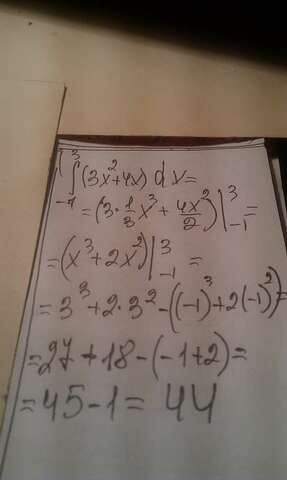 ∫₋₁³ (3x²+4x) dx=
=(3·1/3x³+4x²/2)|₋₁³=
=(x³+2x²)|₋₁³ =
=3³+2·3²-((-1)³+2(-1)²)=
=27+18-(-1+2)=
=45-1=44